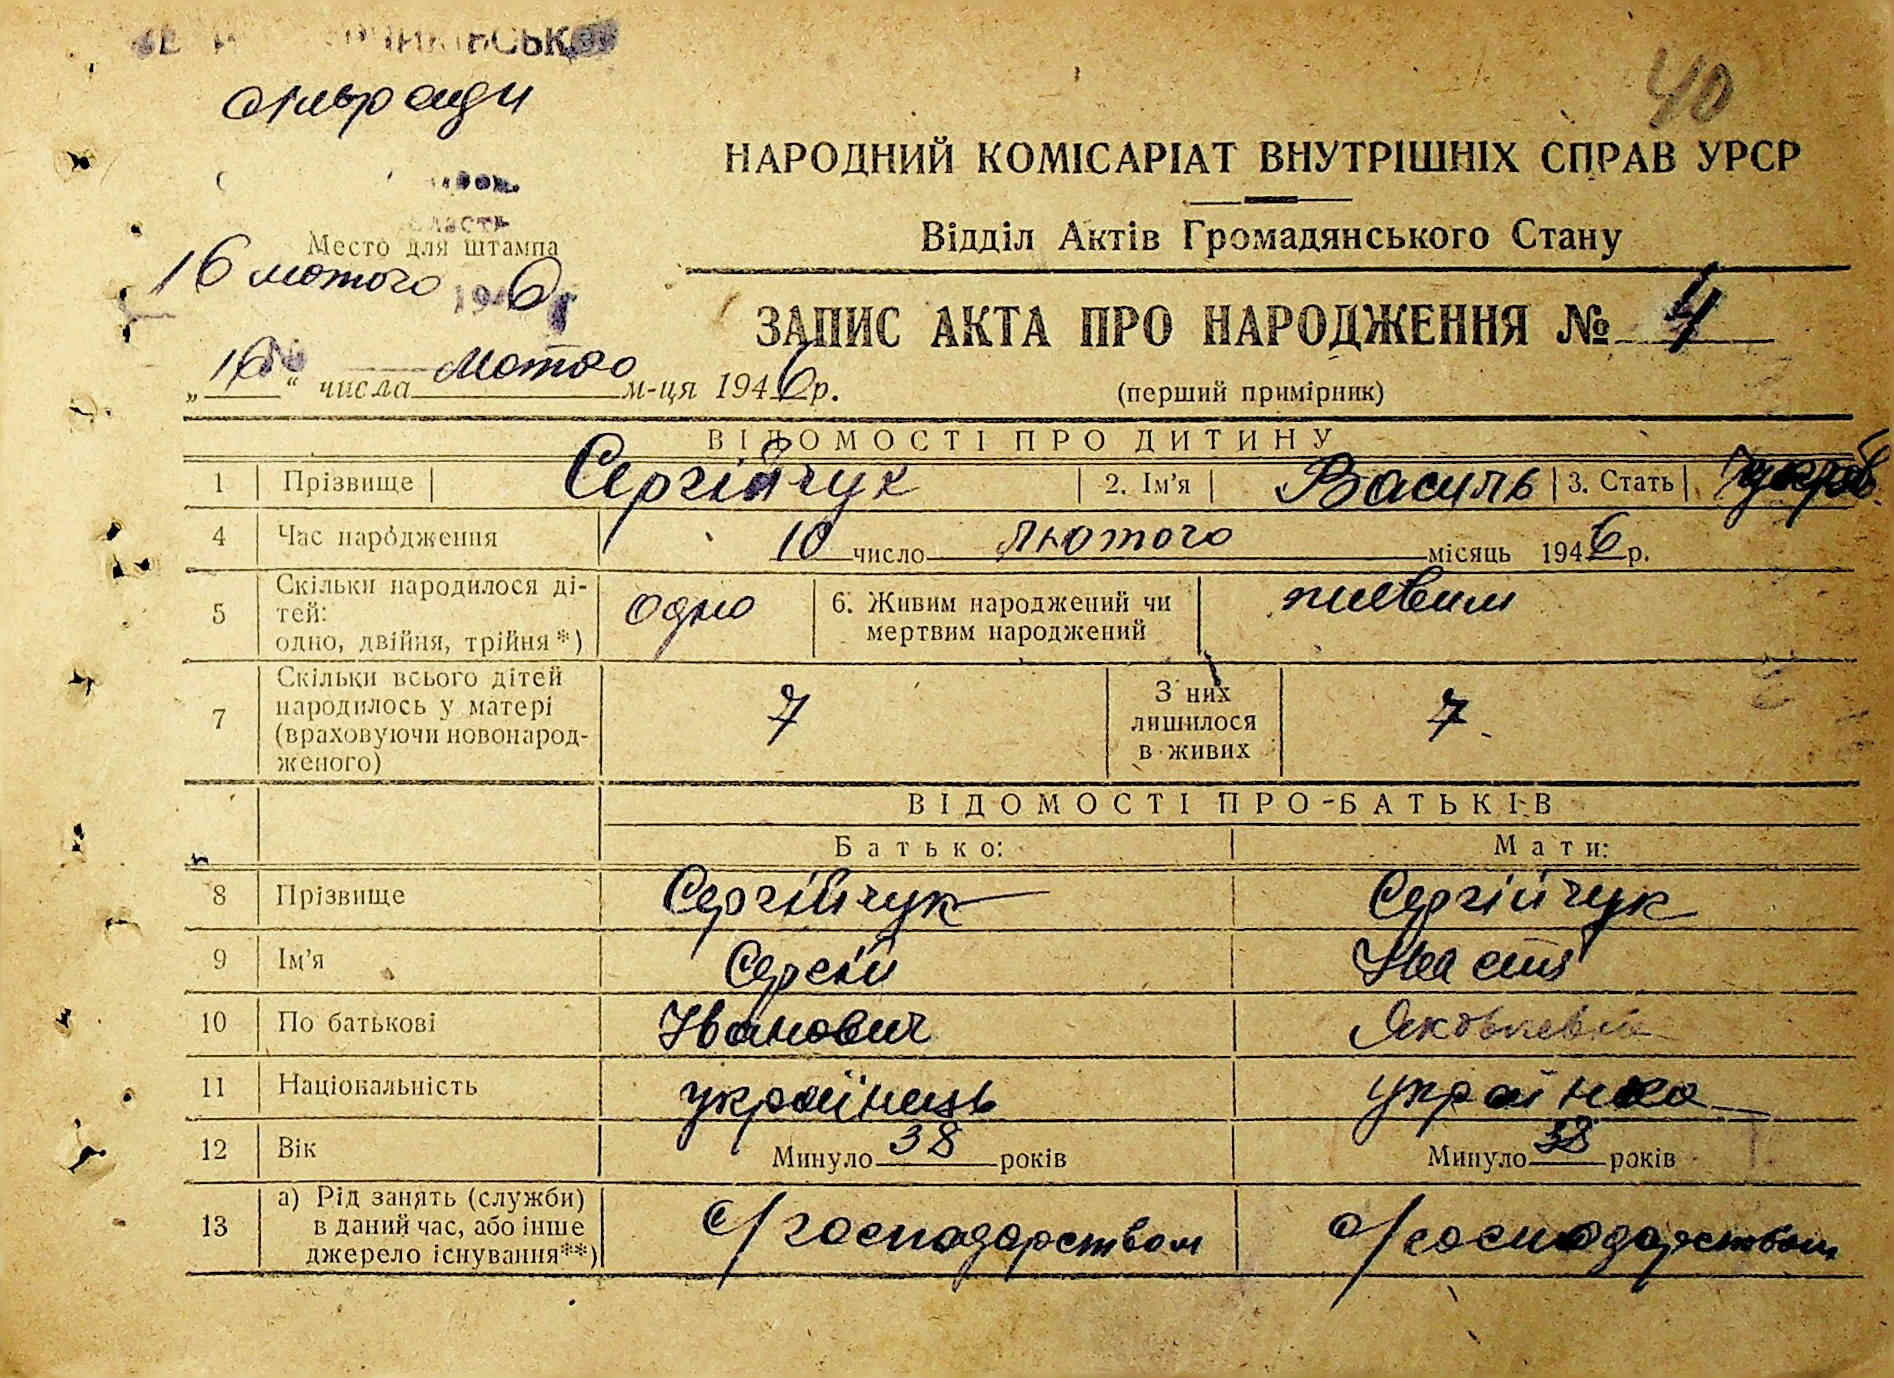 сільради
40
НАРОДНИЙ КОМІСАРІАТ ВНУТРІШНІХ СПРАВ УРСР
Відділ Актів Громадянського Стану
Место для штампа
16 лютого 1946
ЗАПИС АКТА ПРО НАРОДЖЕННЯ № 4
„16“ числа лютого м-ця 1946 р.
(перший примірник)
ВІДОМОСТІ ПРО ДИТИНУ
1 Прізвище Сергійчук 2. Ім'я Василь 3. Стать
4 Час народження 10 число лютого місяць 1946 р.
5 Скільки народилося ді-
тей:
одно, двійня, трійня*) одно 6. Живим народжений чи
мертвим народжений живим
7 Скільки всього дітей
народилось у матері
(враховуючи новонарод-
женого) 7 З них
лишилося
в живих 7
ВІДОМОСТІ ПРО БАТЬКІВ
Батько: Мати:
8 Прізвище Сергійчук Сергійчук
9 Ім'я Сергій Настя
10 По батькові Іванович Яковлевна
11 Національність українець українка
12 Вік Минуло 38 років Минуло 38 років
13 а) Рід занять (служби)
в даний час, або інше
джерело існування**) С/господарством С/господарством